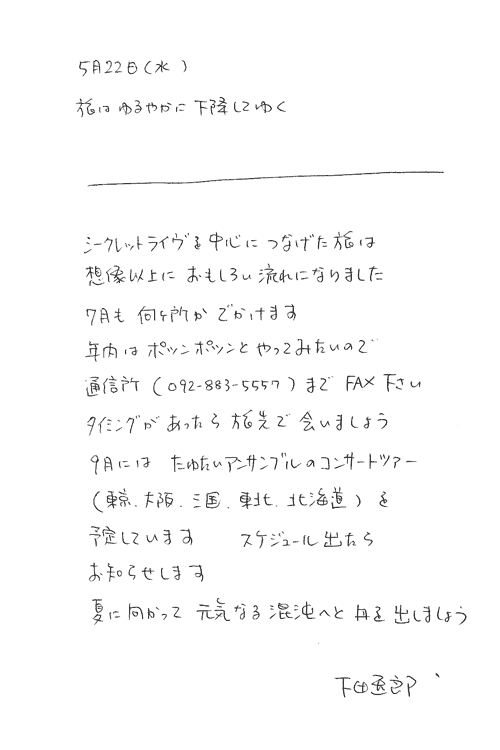 5月22日(水)
旅は ゆるやかに 下降してゆく
シークレットライヴを中心に つなげた旅は
想像以上に おもしろい流れになりました
7月も 何ヶ所か でかけます
年内は ポツンポツンと やってみたいので
通信所(092-883-5557)まで FAX下さい
タイミングが あったら 旅先で 会いましょう
9月には たゆたいアンサンブルのコンサートツアー
(東京.大阪.三国.東北.北海道)を
予定しています スケジュール出たら
お知らせします
夏に向かって 元気なる混沌へと 舟を出しましょう
下田逸郎